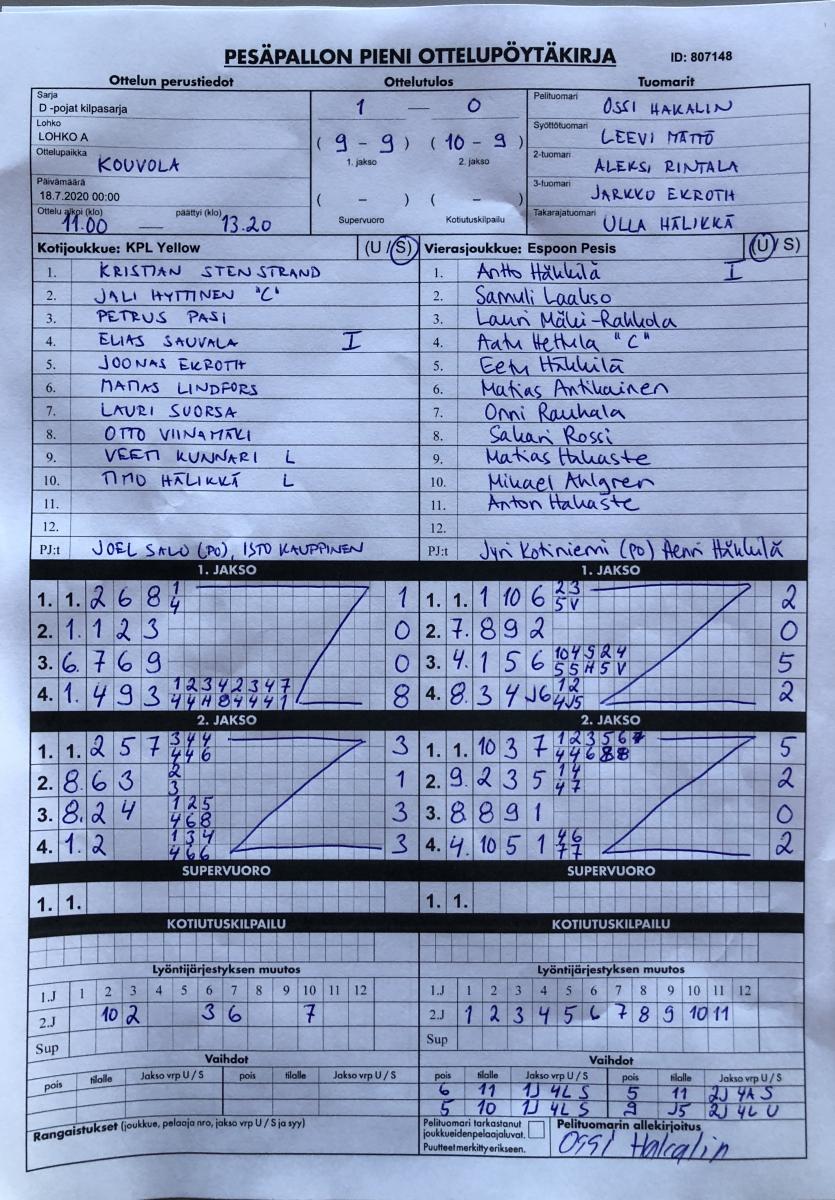 PESÄPALLON PIENI OTTELUPÖYTÄKIRJA
ID: 807148
Ottelun perustiedot
Ottelutulos
Tuomarit
Sarja
D -pojat kilpasarja
Lohko
LOHKO A
Ottelupaikka
KOUVOLA
Päivämäärä
18.7.2020 00:00
Ottelu alkoi (klo)
päättyi (klo)
11.00 — 13.20
1 — 0
( 9 - 9 ) ( 10 - 9 )
1. jakso 2. jakso
( - ) ( - )
Supervuoro Kotiutuskilpailu
Pelituomari
OSSI HAKALIN
Syöttötuomari
LEEVI MÄTTÖ
2-tuomari
ALEKSI RINTALA
3-tuomari
JARKKO EKROTH
Takarajatuomari
ULLA HÄLIKKÄ
Kotijoukkue: KPL Yellow (U / S)
1. KRISTIAN STENSTRAND
2. JALI HYTTINEN "C"
3. PETRUS PASI
4. ELIAS SAUVALA I
5. JOONAS EKROTH
6. MATIAS LINDFORS
7. LAURI SUORSA
8. OTTO VIINAMÄKI
9. VEETI KUNNARI L
10. TIMO HÄLIKKÄ L
11.
12.
PJ:t JOEL SALO (PO), ISTO KAUPPINEN
Vierasjoukkue: Espoon Pesis (U / S)
1. Antto Häkkilä I
2. Samuli Laakso
3. Lauri Mäki-Rahkola
4. Aatu Hettula "C"
5. Eetu Häkkilä
6. Matias Antikainen
7. Onni Rauhala
8. Sakari Rossi
9. Matias Hakaste
10. Mikael Ahlgren
11. Anton Hakaste
12.
PJ:t Jyri Kotiniemi (PO) Henri Häkkilä
1. JAKSO
1. 1. 2 6 8 1 1
4
2. 1. 1 2 3 0
3. 6. 7 6 9 0
4. 1. 4 9 3 1 2 3 4 2 3 4 7 8
4 4 H 8 4 4 4 1
1. JAKSO
1. 1. 1 10 6 2 3 2
5 V
2. 7. 8 9 2 0
3. 4. 1 5 6 10 4 5 2 4 5
5 5 H 5 V
4. 8. 3 4 J6 1 2 2
4 J5
2. JAKSO
1. 1. 2 5 7 3 4 4 3
4 4 6
2. 8. 6 3 2 1
3
3. 8. 2 4 1 2 5 3
4 6 8
4. 1. 2 1 3 4 3
4 6 6
2. JAKSO
1. 1. 10 3 7 1 2 3 5 6 5
4 4 6 8 8
2. 9. 2 3 5 1 4 2
4 7
3. 8. 8 9 1 0
4. 4. 10 5 1 4 6 2
7 7
SUPERVUORO
1. 1.
SUPERVUORO
1. 1.
KOTIUTUSKILPAILU
KOTIUTUSKILPAILU
Lyöntijärjestyksen muutos
1.J 1 2 3 4 5 6 7 8 9 10 11 12
2.J 10 2 3 6 7
Sup
Lyöntijärjestyksen muutos
1.J 1 2 3 4 5 6 7 8 9 10 11 12
2.J 1 2 3 4 5 6 7 8 9 10 11
Sup
Vaihdot
pois tilalle Jakso vrp U / S pois tilalle Jakso vrp U / S
Vaihdot
pois tilalle Jakso vrp U / S pois tilalle Jakso vrp U / S
6 11 1J 4L S 5 11 2J 4A S
5 10 1J 4L S 9 J5 2J 4L U
Rangaistukset (joukkue, pelaaja nro, jakso vrp U / S ja syy)
Pelituomari tarkastanut
joukkueidenpelaajaluvat.
Puutteet merkitty erikseen.
Pelituomarin allekirjoitus
Ossi Hakalin